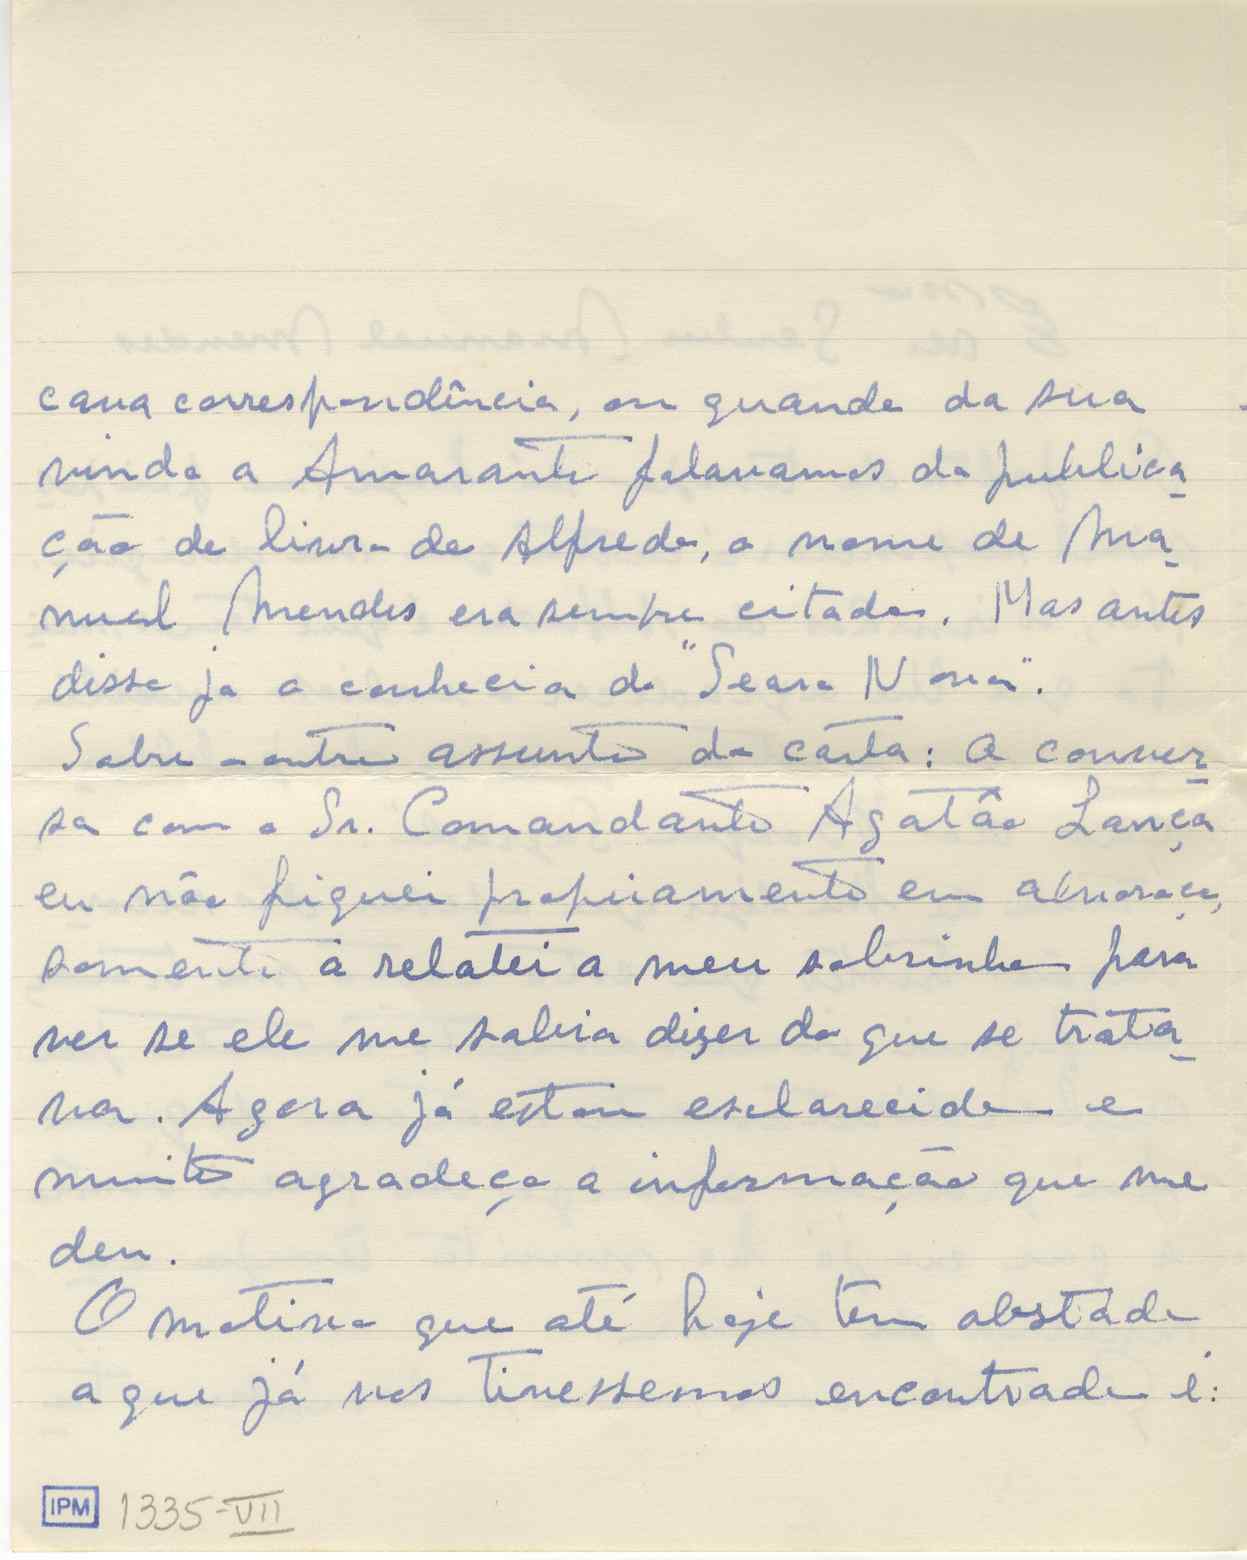 cava correspondência, ou quando da sua
vinda a Amarante falavamos da publica-
ção do livro do Alfredo, o nome de Ma-
nuel Mendes era sempre citado. Mas antes
disso ja o conhecia da "Seara Nova".
Sobre o outro assunto da carta: a conver-
sa com o Sr. Comandante Agatão Lança
eu não fiquei propriamente em
somente a relatei a meu sobrinho para
ver se ele me sabia dizer do que se trata-
va. Agora já estou esclarecido e
muito agradeço a informação que me
deu.
O motivo que até hoje tem obstado
a que já nos tivessemos encontrado é:
IPM 1335-VII